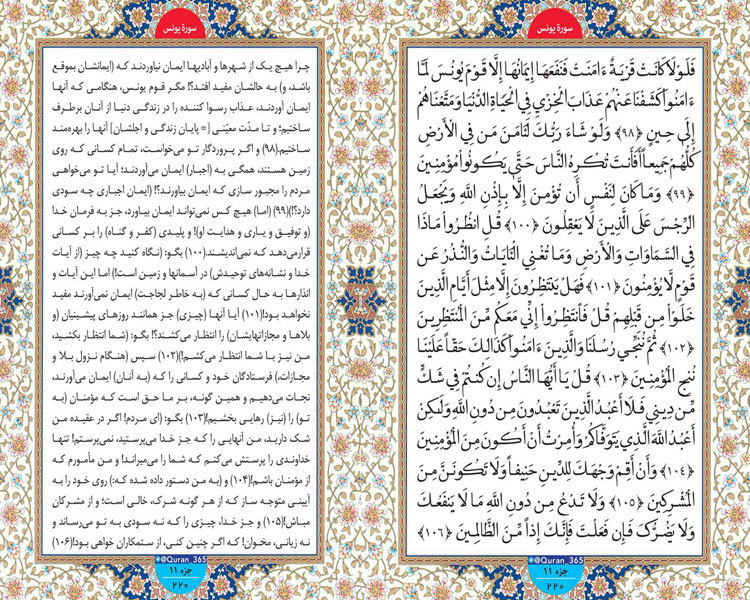 سورهٔ یونس
فَلَوْلَا كَانَتْ قَرْيَةٌ ءَامَنَتْ فَنَفَعَهَا إِيمَانُهَا إِلَّا قَوْمَ يُونُسَ لَمَّا
ءَامَنُوا كَشَفْنَا عَنْهُمْ عَذَابَ الْخِزْيِ فِي الْحَيَاةِ الدُّنْيَا وَمَتَّعْنَاهُمْ
إِلَى حِينٍ ﴿٩٨﴾ وَلَوْ شَاءَ رَبُّكَ لَآمَنَ مَن فِي الْأَرْضِ
كُلُّهُمْ جَمِيعاً أَفَأَنتَ تُكْرِهُ النَّاسَ حَتَّى يَكُونُوا مُؤْمِنِينَ
﴿٩٩﴾ وَمَا كَانَ لِنَفْسٍ أَن تُؤْمِنَ إِلَّا بِإِذْنِ اللَّهِ وَيَجْعَلُ
الرِّجْسَ عَلَى الَّذِينَ لَا يَعْقِلُونَ ﴿١٠٠﴾ قُلِ انظُرُوا مَاذَا
فِي السَّمَاوَاتِ وَالْأَرْضِ وَمَا تُغْنِي الْآيَاتُ وَالنُّذُرُ عَن
قَوْمٍ لَّا يُؤْمِنُونَ ﴿١٠١﴾ فَهَلْ يَنتَظِرُونَ إِلَّا مِثْلَ أَيَّامِ الَّذِينَ
خَلَوْا مِن قَبْلِهِمْ قُلْ فَانتَظِرُوا إِنِّي مَعَكُم مِّنَ الْمُنتَظِرِينَ
﴿١٠٢﴾ ثُمَّ نُنَجِّي رُسُلَنَا وَالَّذِينَ ءَامَنُوا كَذَالِكَ حَقّاً عَلَيْنَا
نُنجِ الْمُؤْمِنِينَ ﴿١٠٣﴾ قُلْ يَا أَيُّهَا النَّاسُ إِن كُنتُمْ فِي شَكٍّ
مِّن دِينِي فَلَا أَعْبُدُ الَّذِينَ تَعْبُدُونَ مِن دُونِ اللَّهِ وَلَكِنْ
أَعْبُدُ اللَّهَ الَّذِي يَتَوَفَّاكُمْ وَأُمِرْتُ أَنْ أَكُونَ مِنَ الْمُؤْمِنِينَ
﴿١٠٤﴾ وَأَنْ أَقِمْ وَجْهَكَ لِلدِّينِ حَنِيفاً وَلَا تَكُونَنَّ مِنَ
الْمُشْرِكِينَ ﴿١٠٥﴾ وَلَا تَدْعُ مِن دُونِ اللَّهِ مَا لَا يَنفَعُكَ
وَلَا يَضُرُّكَ فَإِن فَعَلْتَ فَإِنَّكَ إِذاً مِّنَ الظَّالِمِينَ ﴿١٠٦﴾
@Quran_365
جزء ۱۱
۲۲۰
سورهٔ یونس
چرا هیچ یک از شهرها و آبادیها ایمان نیاوردند که (ایمانشان بموقع
باشد، و) به حالشان مفید افتد؟! مگر قوم یونس، هنگامی که آنها
ایمان آوردند، عذاب رسوا کننده را در زندگی دنیا از آنان برطرف
ساختیم؛ و تا مدّت معیّنی [= پایان زندگی و اجلشان] آنها را بهره‌مند
ساختیم.(۹۸) و اگر پروردگار تو می‌خواست، تمام کسانی که روی
زمین هستند، همگی به (اجبار) ایمان می‌آوردند؛ آیا تو می‌خواهی
مردم را مجبور سازی که ایمان بیاورند؟! (ایمان اجباری چه سودی
دارد؟!)(۹۹) (اما) هیچ کس نمی‌تواند ایمان بیاورد، جز به فرمان خدا
(و توفیق و یاری و هدایت او)! و پلیدی (کفر و گناه) را بر کسانی
قرارمی‌دهد که نمی‌اندیشند.(۱۰۰) بگو: (نگاه کنید چه چیز (از آیات
خدا و نشانه‌های توحیدش) در آسمانها و زمین است!) اما این آیات و
انذارها به حال کسانی که (به خاطر لجاجت) ایمان نمی‌آورند مفید
نخواهد بود!(۱۰۱) آیا آنها (چیزی) جز همانند روزهای پیشینیان (و
بلاها و مجازاتهایشان) را انتظار می‌کشند؟! بگو: (شما انتظار بکشید،
من نیز با شما انتظار می‌کشم!)(۱۰۲) سپس (هنگام نزول بلا و
مجازات،) فرستادگان خود و کسانی را که (به آنان) ایمان می‌آورند،
نجات می‌دهیم و همین گونه، بر ما حق است که مؤمنان (به
تو) را (نیز) رهایی بخشیم!(۱۰۳) بگو: (ای مردم! اگر در عقیده من
شک دارید، من آنهایی را که جز خدا می‌پرستید، نمی‌پرستم! تنها
خداوندی را پرستش می‌کنم که شما را می‌میراند! و من مأمورم که
از مؤمنان باشم!(۱۰۴) و (به من دستور داده شده که:) روی خود را به
آیینی متوجه ساز که از هر گونه شرک، خالی است؛ و از مشرکان
مباش!(۱۰۵) و جز خدا، چیزی را که نه سودی به تو می‌رساند و
نه زیانی، مخوان! که اگر چنین کنی، از ستمکاران خواهی بود!(۱۰۶)
@Quran_365
جزء ۱۱
۲۲۰